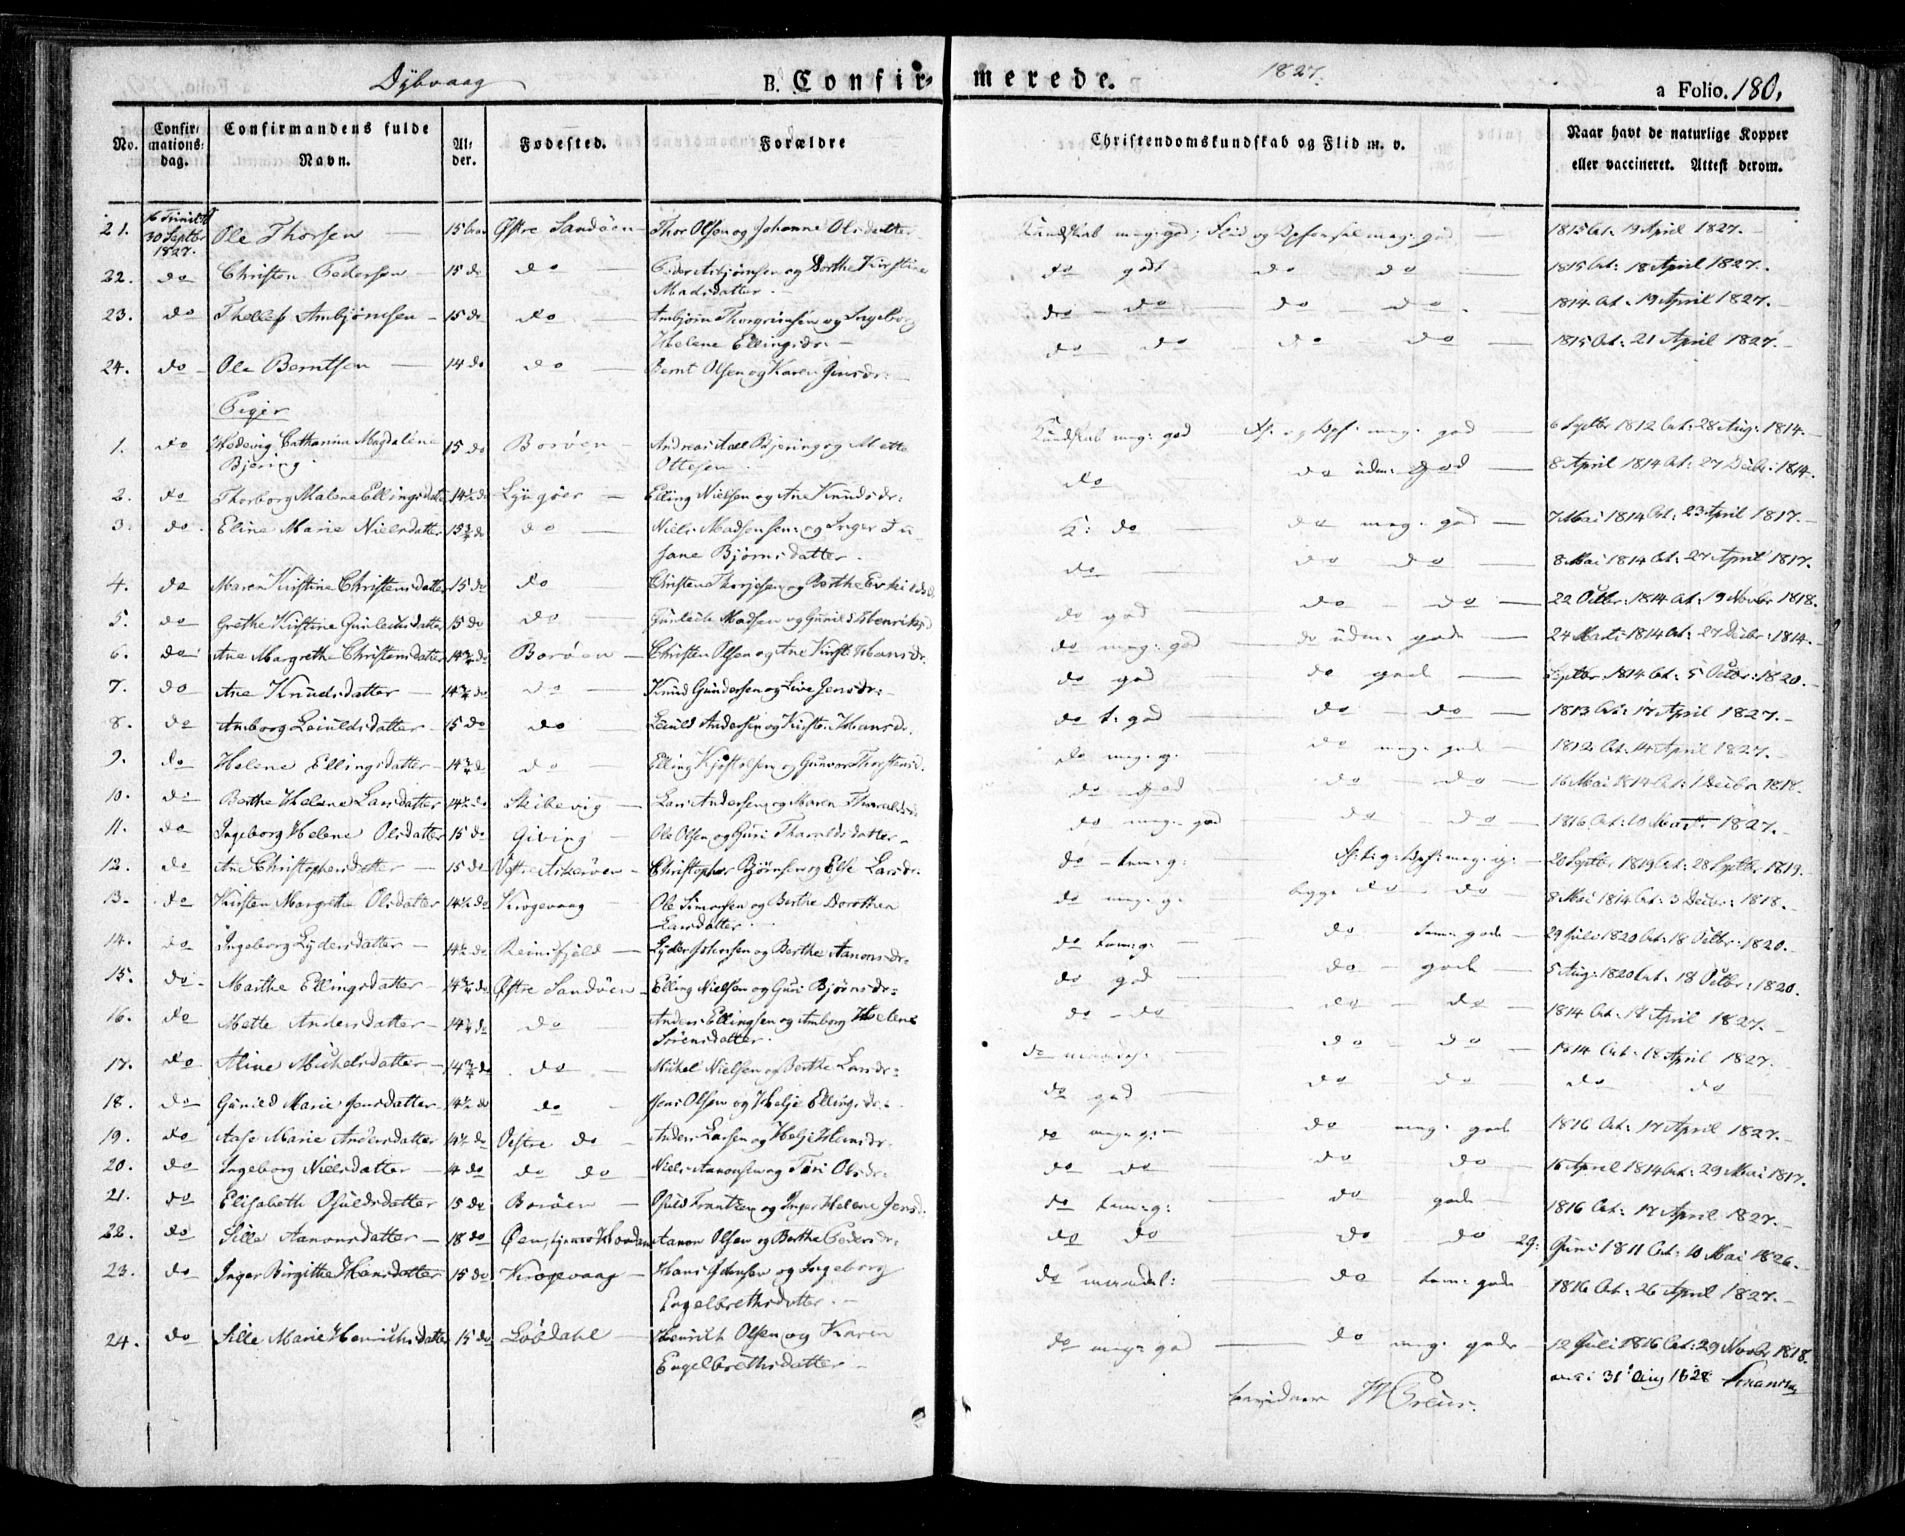 Dybvaag B. Confirmerede. 1827. a Folio. 180.
No. Confirmationsdag. Confirmandens fulde Navn. Alder. Fødested. Forældre Christendomskundskab og Flid m. v. Naar havt de naturlige Kopper eller vaccineret. Attest derom.
21. 16 Trinit: 30 Septbr 1827. Ole Thorsen 15 Østre Sandøen Thor Olsen og Johanne Olsdatter Kundskab meg: god; Flid og Opførsel meg: god 1815 At: 19 April 1827.
22. do Christen Pedersen 15 do do Peder Anbjørnsen og Dorthe Kirstine
Madsdatter. do godt do do 1815 At: 18 April 1827.
23. do Thellef Anbjørnsen 15 do do Anbjørn Thorgrimsen og Ingeborg
Helene Ellingsdr: do do do do 1814 At: 19 April 1827.
24. do Ole Berntsen 14 do do Bernt Olsen og Karen Jensdr: do do do do 1815 At: 21 April 1827.
Piger
1. do Hedevig Catharina Magdalene
Bjering. 15 do Borøen Andreas Aall Bjering og Mette
Ottesen. Kundskab meg: god Fl: og Opf: meg: god 6 Septbr 1812 At: 28 Aug: 1814.
2. do Thorborg Malene Ellingsdatter 14½ do Lyngøer Elling Nielsen og Ane Knudsdr: do do udm: god 8 April 1814 At: 27 Decbr: 1814.
3. do Eline Marie Nielsdatter 15¾ do do Niels Madsensen og Inger Su-
sane Bjørnsdatter. K: do do meg: god 7 Mai 1814 At: 23 April 1817.
4. do Maren Kirstine Christensdatter 15 do do Christen Thorjesen og Berthe Eskildsd do do do 8 Mai 1814 At: 27 April 1817.
5. do Grethe Kirstine Gunleiksdatter 15 do do Gunleik Madsen og Gunild Henriksd do god do do 22 Octbr: 1814 At: 19 Novbr 1818.
6. do Ane Margrethe Christensdatter 14¾ do Borøen Christen Olsen og Ane Kirst: Hansdr. do meg: god do udm: gode 24 Marts 1814 At: 27 Decbr: 1814.
7. do Ane Knudsdatter 14¾ do do Knud Gundersen og Live Jensdr: do god do gode Septbr 1814 At: 5 Octbr: 1820.
8. do Anborg Leiuldsdatter 15 do do Leiuld Andersen og Kirsten Hansdr. do t: god do do 1813 At: 17 April 1827.
9. do Helene Ellingsdatter 14¾ do do Elling Kjøstolsen og Gunvor Thorstensd. do meg: g: do meg: gode 1812 At: 14 April 1827.
10. do Berthe Helene Larsdatter 14½ do Skibevig Lars Andersen og Maren Tharaldsd: do god do do 16 Mai 1814 At: 1 Decbr 1818.
11. do Ingeborg Helene Olsdatter 15 do Giving Ole Olsen og Guri Tharaldsdatter do meg: god do do 1816 At: 10 Marts 1827.
12. do Ane Christophersdatter 15 do Vestre Askerøen Christopher Bjørnsen og Else Larsdr: do tem: g: Fl: t: g: Opf: meg: g: 20 Septbr 1819 At: 28 Septbr 1819.
13. do Kirsten Margrethe Olsdatter 14½ do Krogevaag Ole Simonsen og Berthe Dorothea
Larsdatter. do meg: g. begge do do 8 Mai 1814 At: 3 Decbr: 1818.
14. do Ingeborg Lydersdatter 14½ do Reinsfjeld Lyder Ishorsen og Berthe Aanonsdr: do tem: g: do tem: gode 29 Juli 1820 At: 18 Octbr: 1820.
15. do Marthe Ellingsdatter 14¾ do Østre Sandøen Elling Nielsen og Guri Bjørnsdr: do god do gode 5 Aug: 1820 At: 18 Octbr: 1820.
16. do Mette Andersdatter 14¾ do do Anders Ellingsen og Anborg Helene
Sørensdatter. do do do do 1814 At: 18 April 1827.
17. do Aline Michelsdatter 14¾ do do Michel Nielsen og Berthe Larsdr: do do do 1814 At: 18 April 1827.
18. do Gunild Marie Jensdatter 14½ do do Jens Olsen og Helje Ellingsdr: do god do do do do
19. do Aase Marie Andersdatter 14½ do Vestre do Anders Larsen og Helje Hansdr. do meg: g: do meg: gode 1816 At: 17 April 1827.
20. do Ingeborg Nielsdatter 14 do do do Niels Aanonsen og Tori Olsdr: do do do do 16 April 1814 At: 29 Mai 1817.
21. do Elisabeth Osuldsdatter 15 do Borøen Osuld Frantzen og Inger Helene Jensd: do tem: g: do gode 1816 At: 17 April 1827.
22. do Sille Aanonsdatter 18 do Aanon Olsen og Berthe Pedersdr: do do do do 29: Juni 1811 At: 10 Mai 1826.
23. do Inger Birgitte Hansdatter 15 do Krogevaag Hans Isaksen og Ingeborg
Engelbrethsdatter. do maadel: do tem: gode 1816 At: 26 April 1827.
24. do Sille Marie Henrichsdatter 15 do Løvdahl Henrich Olsen og Karen
Engelbrethsdatter do meg: god do meg: gode 12 Juli 1816 At: 29 Novbr 1818.
31 Aug 1828